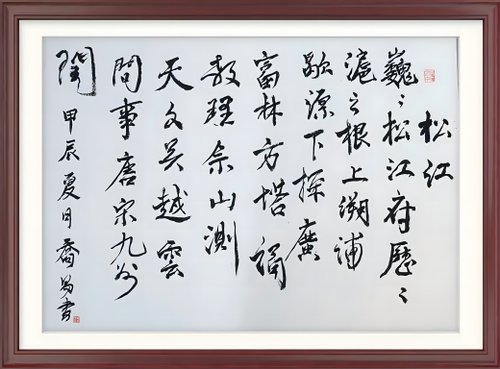 松江
巍々松江府歷々
滬之根上溯浦
歇源下探廣
富林方塔謁
教理佘山測
天文吴越雲
間事唐宋九州
聞 甲辰夏日喬書